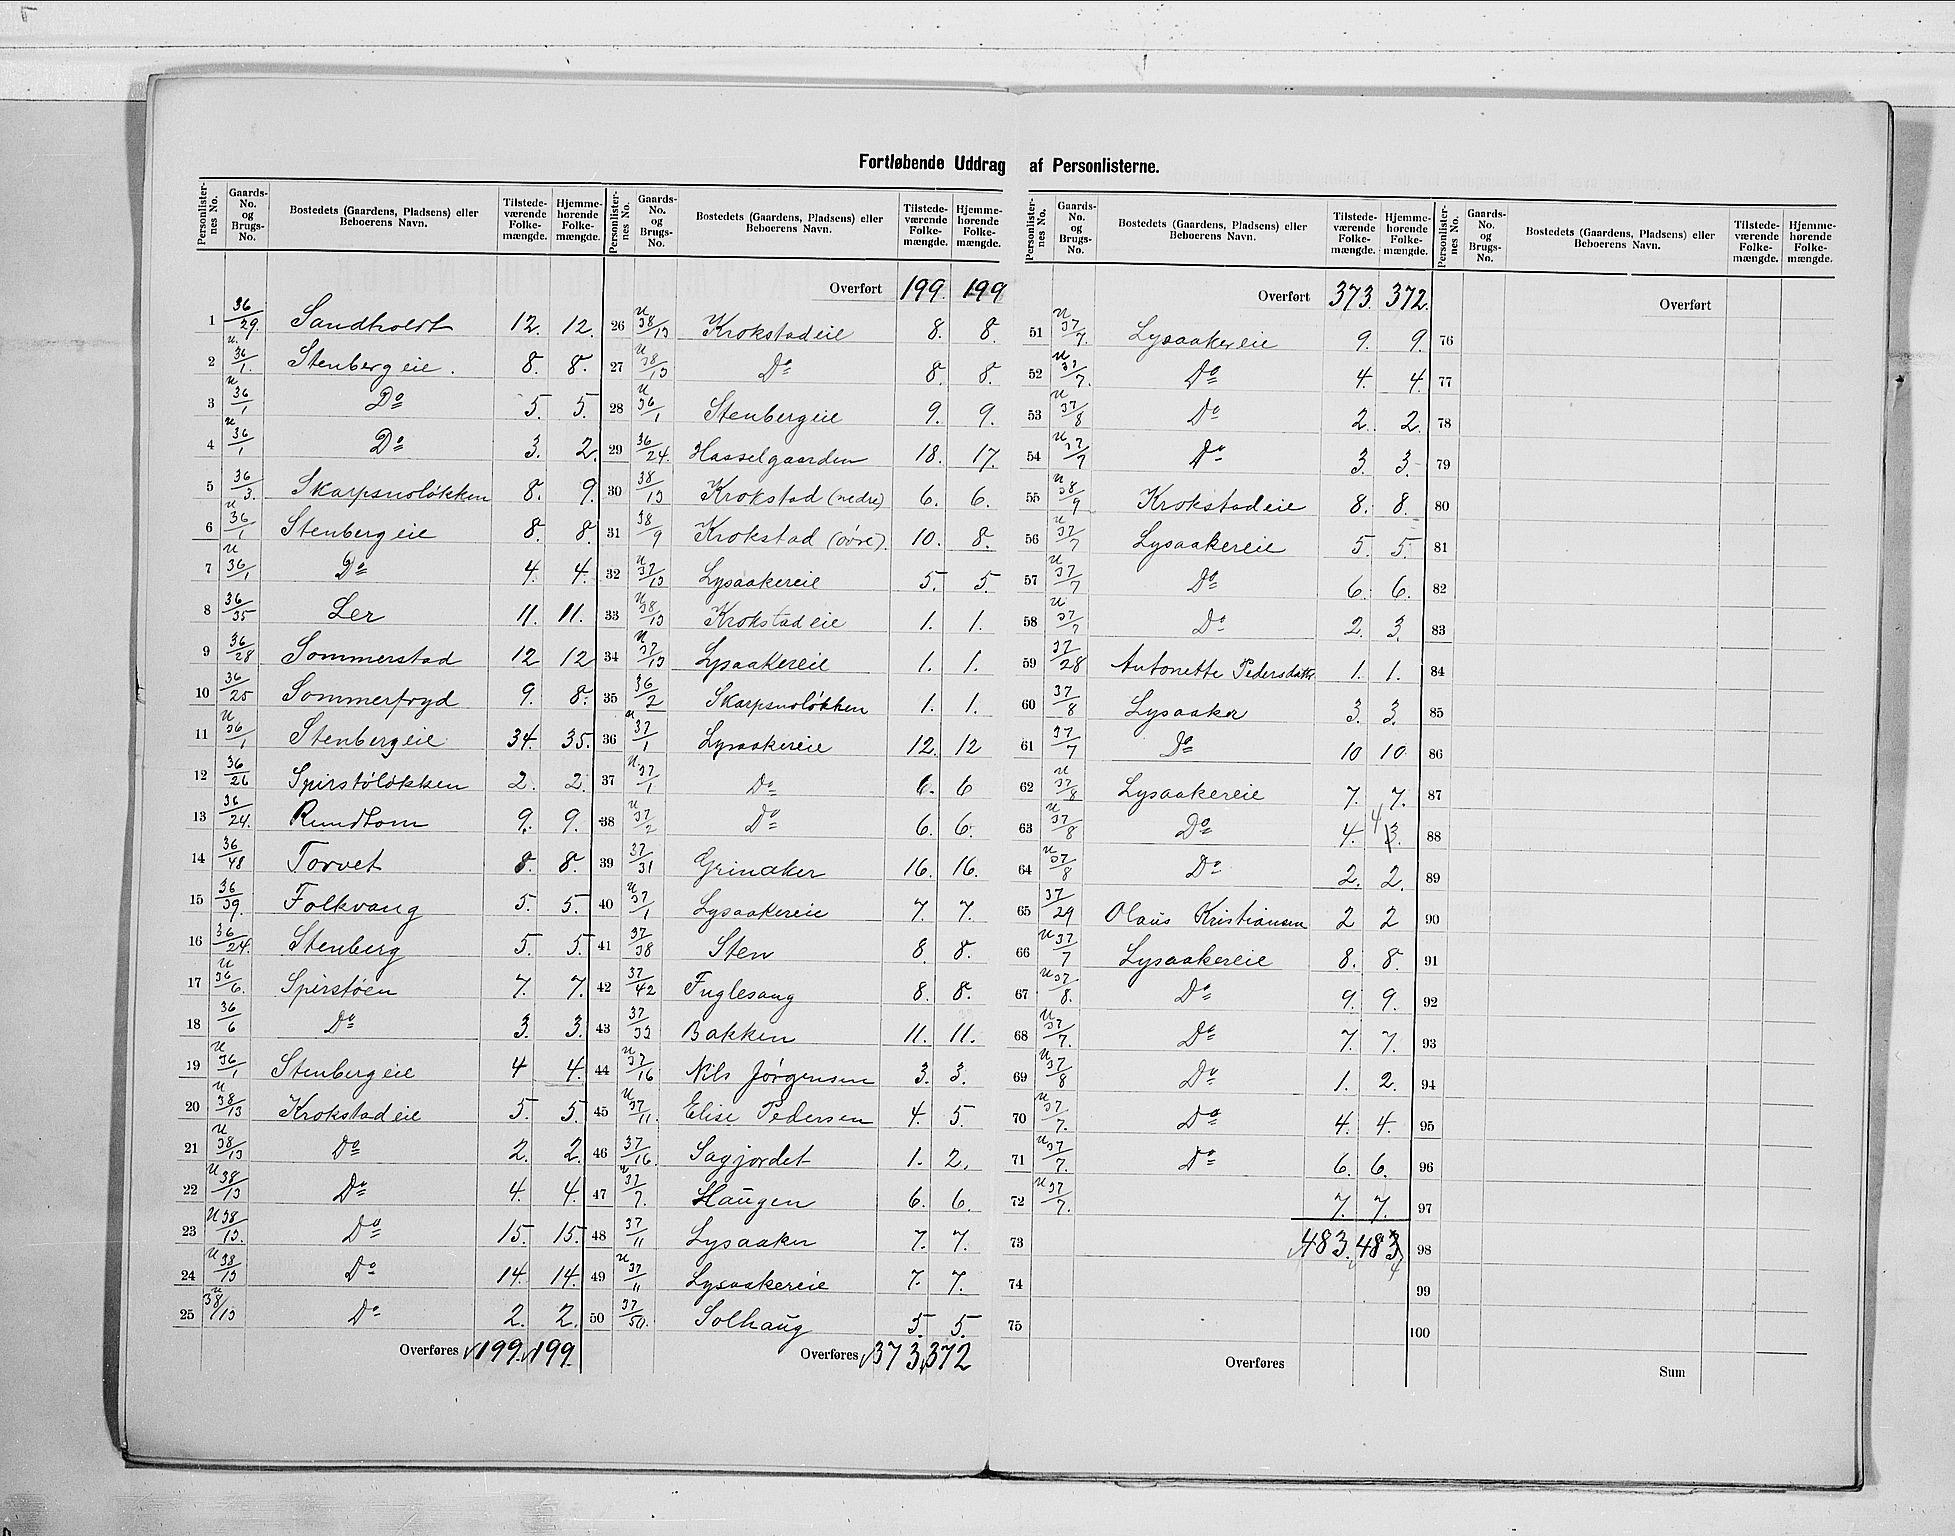 Fortløbende Uddrag af Personlisterne.
Personlister-nes No. Gaards-No. og Brugs-No. Bostedets (Gaardens, Pladsens) eller Beboerens Navn. Tilstede-værende Folke-mængde. Hjemme-hørende Folke-mængde.
1 36/29. Sandholdt 12. 12.
2 u 36/1. Stenbergeie. 8. 8.
3 u 36/1 Do 5. 5.
4 u 36/1 Do 3. 2.
5 36/3. Skarpsnoløkken 8. 9.
6 u 36/1 Stenbergeie 8. 8.
7 u 36/1 Do 4. 4.
8 36/35 Ler 11. 11.
9 36/28 Sommerstad 12 12
10 36/25 Sommerfryd 9. 8.
11 u 36/1 Stenbergeie 34. 35.
12 36/26 Spirstøløkken 2. 2.
13 36/24. Rundtom 9. 9.
14 36/48 Torvet 8. 8.
15 36/39. Folkvang 5. 5.
16 36/24. Stenberg 5. 5.
17 u 36/6. Spirstøen 7. 7.
18 36/6 Do 3. 3.
19 u 36/1 Stenbergeie 4 4.
20 u 38/13 Krokstadeie 5. 5.
21 u 38/13 Do 2. 2.
22 u 38/13 Do 4. 4.
23 u 38/13. Do 15. 15.
24 u 38/13 Do 14. 14.
25 u 38/13 Do 2. 2.
Overføres 199. 199.
Personlister-nes No. Gaards-No. og Brugs-No. Bostedets (Gaardens, Pladsens) eller Beboerens Navn. Tilstede-værende Folke-mængde. Hjemme-hørende Folke-mængde.
Overført 199. 199
26 u 38/13 Krokstadeie 8. 8.
27 u 38/13 Do 8. 8.
28 u 36/1 Stenbergeie 9. 9.
29 36/24. Hasselgaarden 18. 17.
30 38/13 Krokstad (nedre) 6. 6.
31 38/9 Krokstad (øvre). 10. 8.
32 u 37/13 Lysaakereie 5. 5.
33 u 38/13 Krokstadeie 1. 1.
34 u 37/13 Lysaakereie 1. 1.
35 36/2 Skarpsnoløkken 1. 1.
36 u 37/1 Lysaakereie 12. 12
37 u 37/1 Do 6. 6
38 u 37/2 Do 6. 6.
39 37/31 Grinaker 16. 16.
40 u 37/1 Lysaakereie 7. 7.
41 37/38 Sten 8. 8.
42 37/42 Fuglesang 8. 8.
43 37/33 Bakken 11. 11.
44 u 37/16 Nils Jørgensen 3. 3.
45 u 37/11. Elise Pedersen 4. 5.
46 37/16. Sagjordet 1. 2.
47 u 37/7. Haugen 6. 6.
48 37/11 Lysaaker 7. 7.
49 u 37/11 Lysaakereie 7. 7.
50 37/50. Solhaug 5. 5.
Overføres 373. 372
Personlister-nes No. Gaards-No. og Brugs-No. Bostedets (Gaardens, Pladsens) eller Beboerens Navn. Tilstede-værende Folke-mængde. Hjemme-hørende Folke-mængde.
Overført 373. 372.
51 u 37/7. Lysaakereie 9. 9.
52 u 37/7. Do 4. 4.
53 u 37/8 Do 2. 2.
54 u 37/7 Do 3. 3.
55 u 38/9 Krokstadeie 8. 8.
56 u 37/7 Lysaakereie 5. 5.
57 u 37/7 Do 6. 6.
58 u 37/7 Do 2. 3.
59 37/28 Antonette Pedersdattr. 1. 1.
60 37/8 Lysaaker 3. 3.
61 37/7 Do 10 10.
62 u 37/8 Lysaakereie 7. 7.
63 u 37/8 Do 4. 4 3.
64 u 37/8 Do 2. 2.
65 37/29 Olaus Kristiansen 2 2
66 u 37/7 Lysaakereie 8. 8.
67 u 37/8. Do 9. 9.
68 u 37/7. Do 7. 7.
69 u 37/8 Do 1. 2.
70 u 37/7. Do 4. 4.
71 u 37/7. Do 6. 6.
72 u 37/7. 7. 7.
73 483. 483 4
74
75
Overføres
Personlister-nes No. Gaards-No. og Brugs-No. Bostedets (Gaardens, Pladsens) eller Beboerens Navn. Tilstede-værende Folke-mængde. Hjemme-hørende Folke-mængde.
Overført
76
77
78
79
80
81
82
83
84
85
86
87
88
89
90
91
92
93
94
95
96
97
98
99
100
Sum